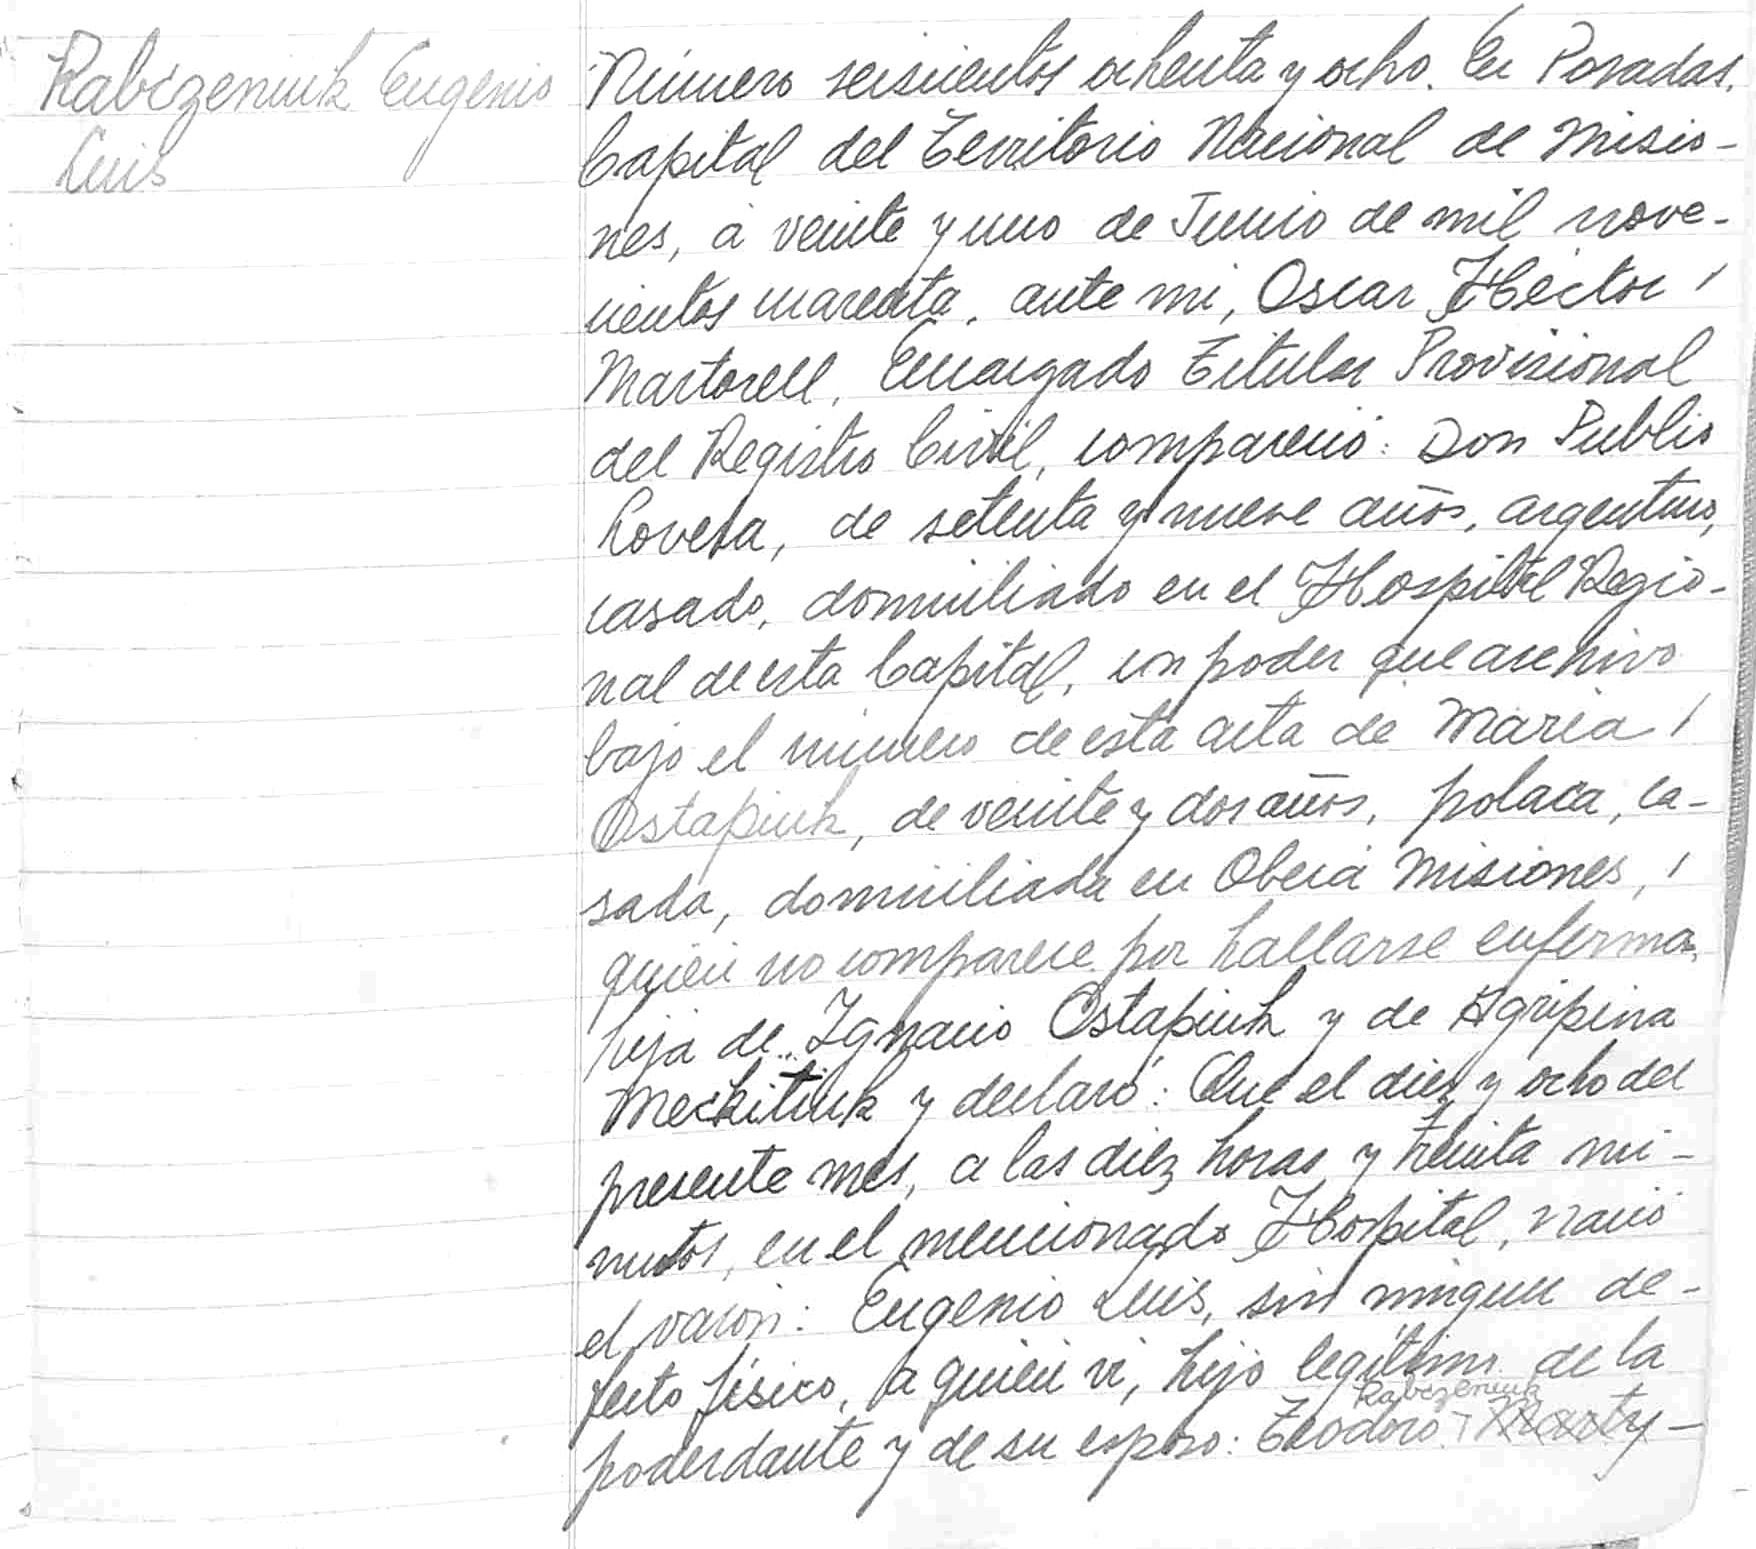 Rabczeniuk Eugenio
Luis
Número seiscientos ochenta y ocho. En Posadas,
Capital del Territorio Nacional de Misio-
nes, á veinte y uno de Junio de mil nove-
cientos cuarenta, ante mi, Oscar Héctor /
Martorell, Encargado Titular Provisional
del Registro Civil, compareció: Don Publio
Rovera, de setenta y nueve años, argentino,
casado, domiciliado en el Hospital Regio-
nal de esta Capital, con poder que archivo
bajo el número de esta acta de María /
Ostapiuk, de veinte y dos años, polaca, ca-
sada, domiciliada en Oberá Misiones, /
quien no comparece por hallarse enferma,
hija de Ignacio Ostapiuk y de Agripina
Mechitiuk y declaró: Que el diez y ocho del
presente mes, a las diez horas y treinta mi-
nutos, en el mencionado Hospital, nació
el varon: Eugenio Luis, sin ningun de-
fecto físico, a quien vi, hijo legítimo de la
Rabczeniuk
poderdante y de su esposo: Teodoro Marty-